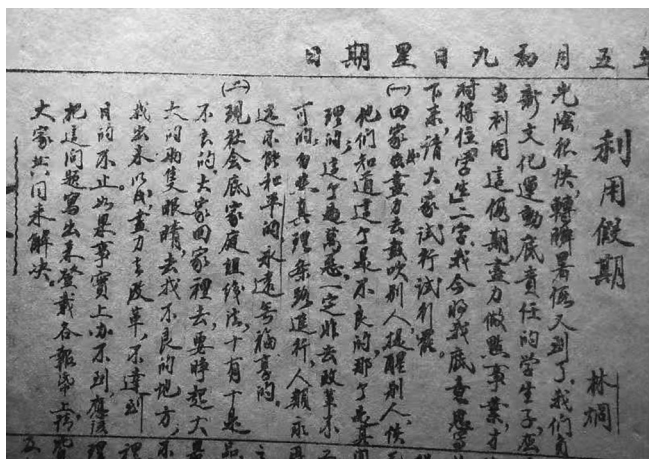 年五月初九日星期日
利用假期
林烱
光陰很快,轉瞬暑假又到了。我們負
新文化運動底責任的学生子,應
当利用這個假期,盡力做點事業,才
对得住"学生"二字。我今將我底意思寫
下来,請大家試行試行罷。
(一)回家後盡力去鼓吹別人,提醒別人,使
他們知道這个是不良的,那个是真
理的,這个為萬惡一定非去改革不
可的,勿要真理
這不能和平的永遠無福享的。
(二)現社会底家庭組織法,十有十是
不良的。大家回家裡去,要睜起大
大的两隻眼睛去找不良的地方,不
找出来以民,盡力去改革,不達到
目的不止。如果事實上办不到,應該
把這问题寫出来登載各報帋上,待
大家共同来解決。